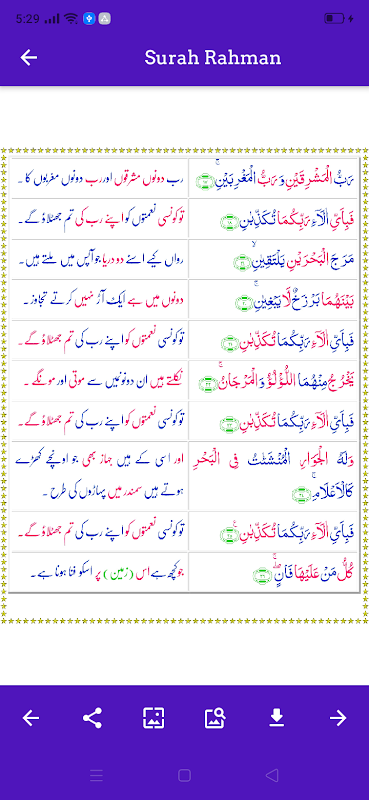 5:29
Surah Rahman
رَبُّ الْمَشْرِقَيْنِ وَرَبُّ الْمَغْرِبَيْنِۚ ﴿١٧﴾
رب دونوں مشرقوں اور رب دونوں مغربوں کا ۔
فَبِاَيِّ اٰلَآءِ رَبِّكُمَا تُكَذِّبٰنِ ﴿١٨﴾
تو کونسی نعمتوں کو اپنے رب کی تم جھٹلاؤ گے۔
مَرَجَ الْبَحْرَيْنِ يَلْتَقِيٰنِۙ ﴿١٩﴾
رواں کیے اسنے دو دریا جو آپس میں ملتے ہیں۔
بَيْنَهُمَا بَرْزَخٌ لَّا يَبْغِيٰنِۚ ﴿٢٠﴾
دونوں میں ہے ایک آڑ نہیں کرتے تجاوز ۔
فَبِاَيِّ اٰلَآءِ رَبِّكُمَا تُكَذِّبٰنِ ﴿٢١﴾
تو کونسی نعمتوں کو اپنے رب کی تم جھٹلاؤ گے۔
يَخْرُجُ مِنْهُمَا اللُّؤْلُؤُ وَالْمَرْجَانُۚ ﴿٢٢﴾
نکلتے ہیں ان دونوںمیں سے موتی اور مونگے ۔
فَبِاَيِّ اٰلَآءِ رَبِّكُمَا تُكَذِّبٰنِ ﴿٢٣﴾
تو کونسی نعمتوں کو اپنے رب کی تم جھٹلاؤ گے۔
وَلَهُ الْجَوَارِ الْمُنْشَئٰتُ فِي الْبَحْرِ
كَالْاَعْلَامِۚ ﴿٢٤﴾
اور اسی کے ہیں جہاز بھی جو اونچے کھڑے
ہوتے ہیں سمندر میں پہاڑوں کی طرح ۔
فَبِاَيِّ اٰلَآءِ رَبِّكُمَا تُكَذِّبٰنِ ﴿٢٥﴾
تو کونسی نعمتوں کو اپنے رب کی تم جھٹلاؤ گے۔
كُلُّ مَنْ عَلَيْهَا فَانٍۚ ﴿٢٦﴾
جو کچھ ہے اس (زمین) پر اسکو فنا ہونا ہے۔